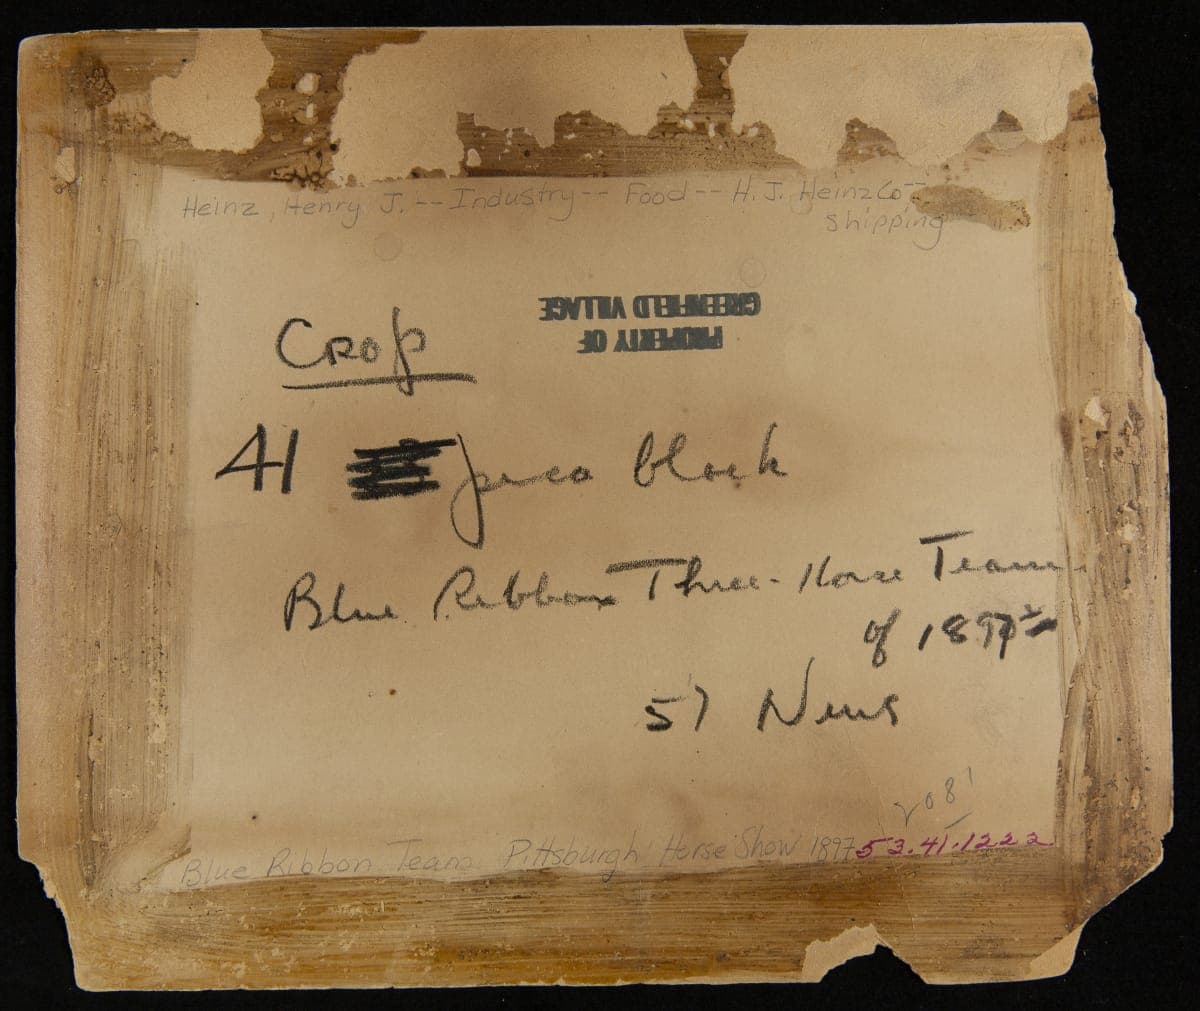 Heinz, Henry J. -- Industry -- Food -- H. J. Heinz Co --
Shipping
PROPERTY OF
GREENFIELD VILLAGE
Crop
41 pica block
Blue Ribbon Three-Horse Team
of 1897
57 News
2081
Blue Ribbon Team Pittsburgh Horse Show 1897 53.41.1222